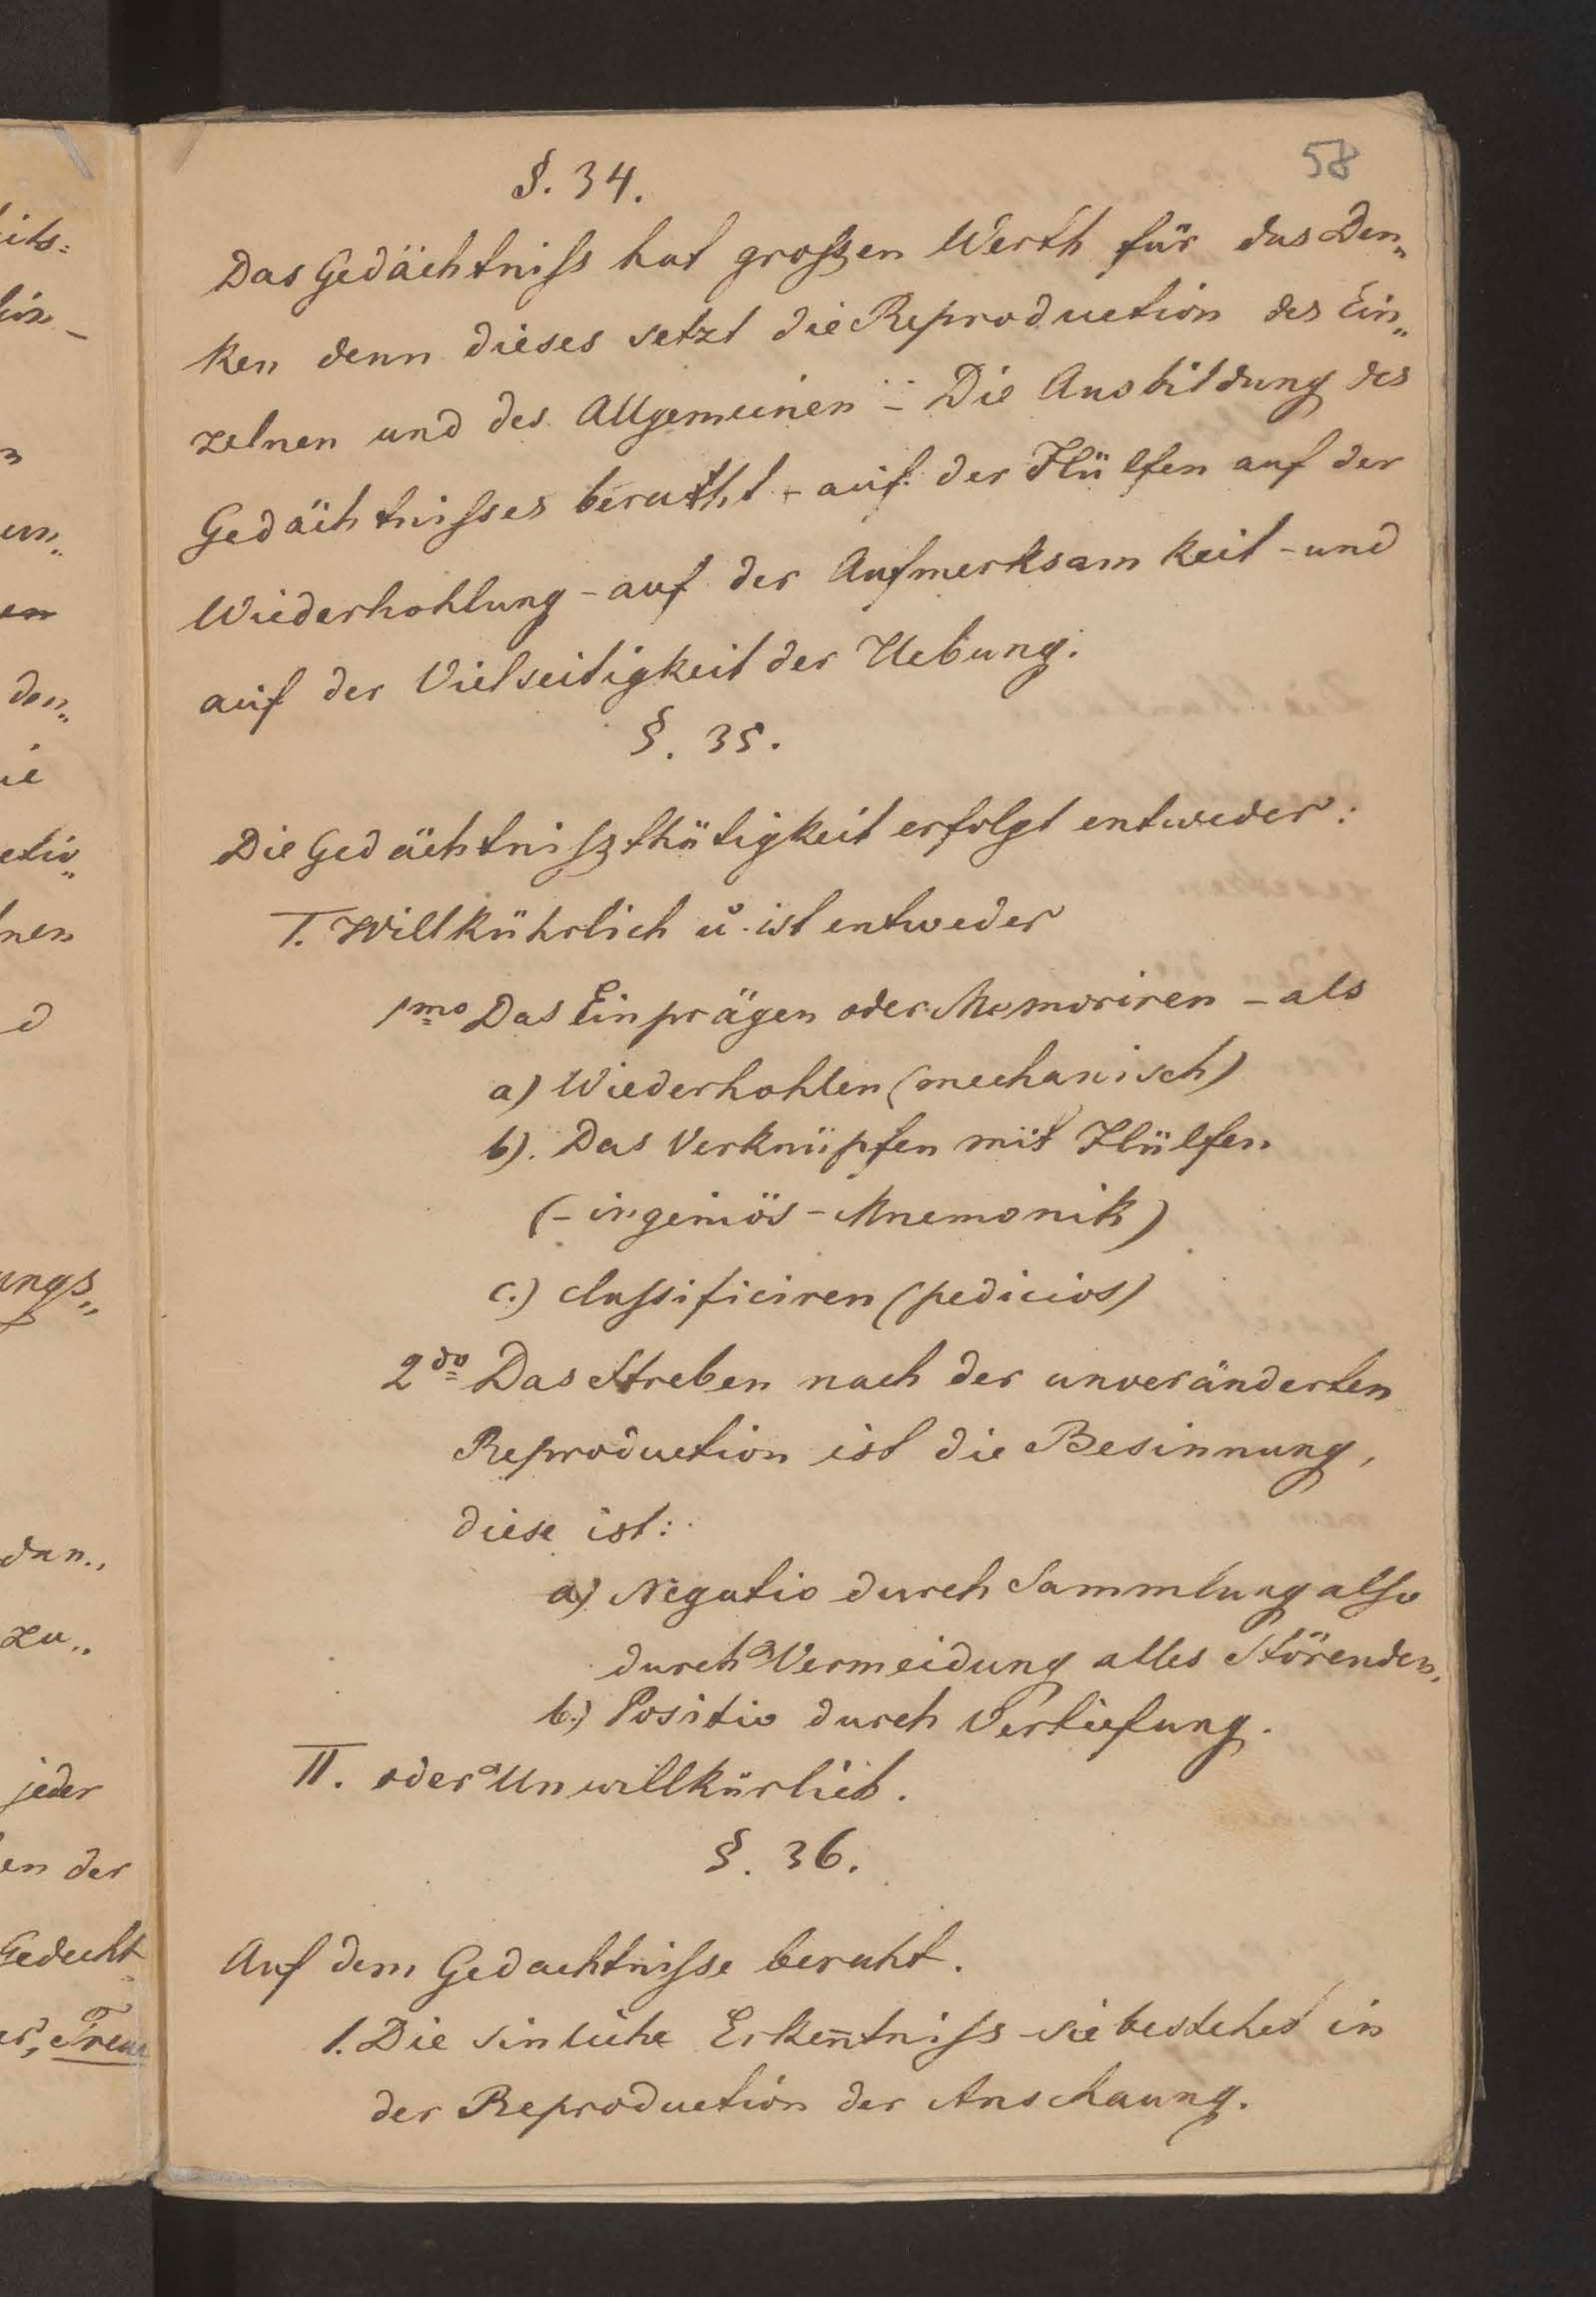 58
§. 34.
Das Gedächtniss hat groszen Werth für das Den„
ken denn dieses setzt die Reproduction des Ein„
zelnen und des Allgemeinen – Die Ausbildung des
Gedächtnisses beruht – auf der Hülfen auf der
Wiederhohlung – auf der Aufmerksamkeit – und
auf der Vielseitigkeit der Uebung.
§. 35.
Die Gedächtniszthätigkeit erfolgt entweder:
I. Willkührlich u. ist entweder
1mo Das Einprägen oder Memoriren – als
a) Wiederhohlen (mechanisch)
b). Das Verknüpfen mit Hülfen
(– ingeniös – Mnemonik)
c.) classificiren (pedicios)
2do Das Streben nach der unveränderten
Reproduction ist die Besinnung,
diese ist:
a) Negativ durch Sammlung also
durch Vermeidung alles Störenden.
b.) Positiv durch Vertiefung.
II. oder Unwillkürlich.
§. 36.
Auf dem Gedachtnisse beruht.
1. Die sinliche Erkentniss sie bestehet in
der Reproduction der Anschaung.